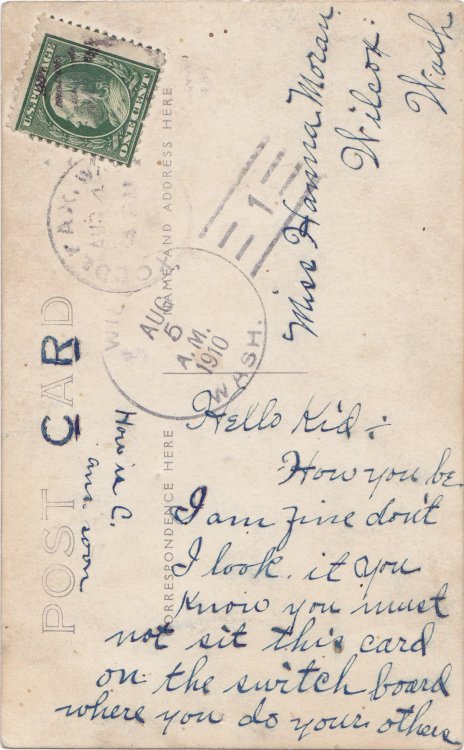 U.S. POSTAGE
ONE CENT
COLFAX, W
AUG 4
PM
WIL
AUG
5
A.M.
1910
WASH.
1
Miss Hanna Moran
Wilcox
Wash
POST CARD
NAME AND ADDRESS HERE
CORRESPONDENCE HERE
Hello Kid:-
How you be
I am fine don't
I look. it you
know you must
not sit this card
on the switch board
where you do your others
How is C.
ans. soon